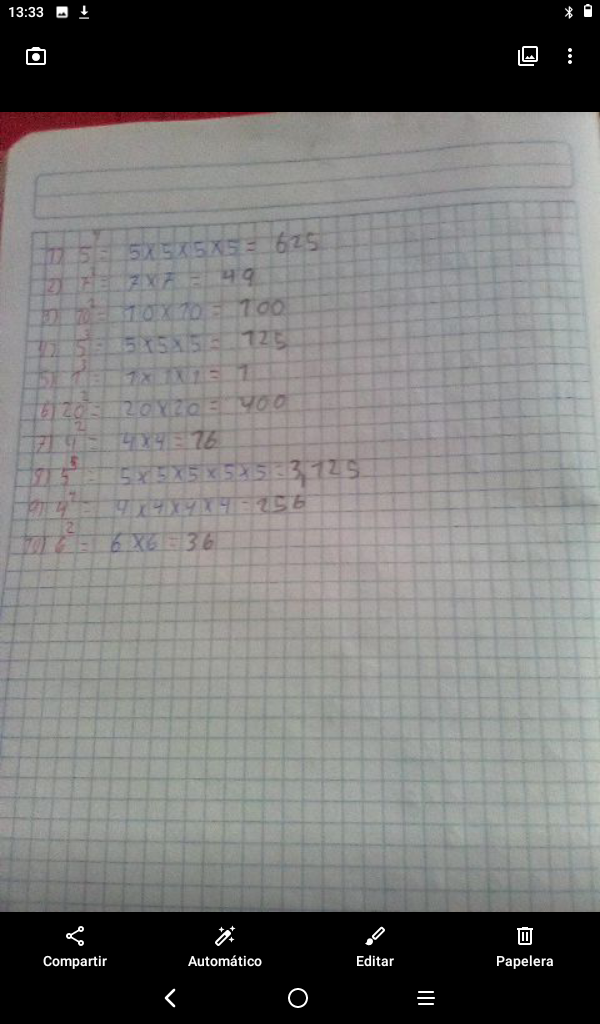 13:33
1) 5⁴ = 5x5x5x5 = 625
2) 7² = 7x7 = 49
3) 10² = 10x10 = 100
4) 5³ = 5x5x5 = 125
5) 1³ = 1x1x1 = 1
6) 20² = 20x20 = 400
7) 4² = 4x4 = 16
8) 5⁵ = 5x5x5x5x5 = 3,125
9) 4⁴ = 4x4x4x4 = 256
10) 6² = 6x6 = 36
Compartir Automático Editar Papelera